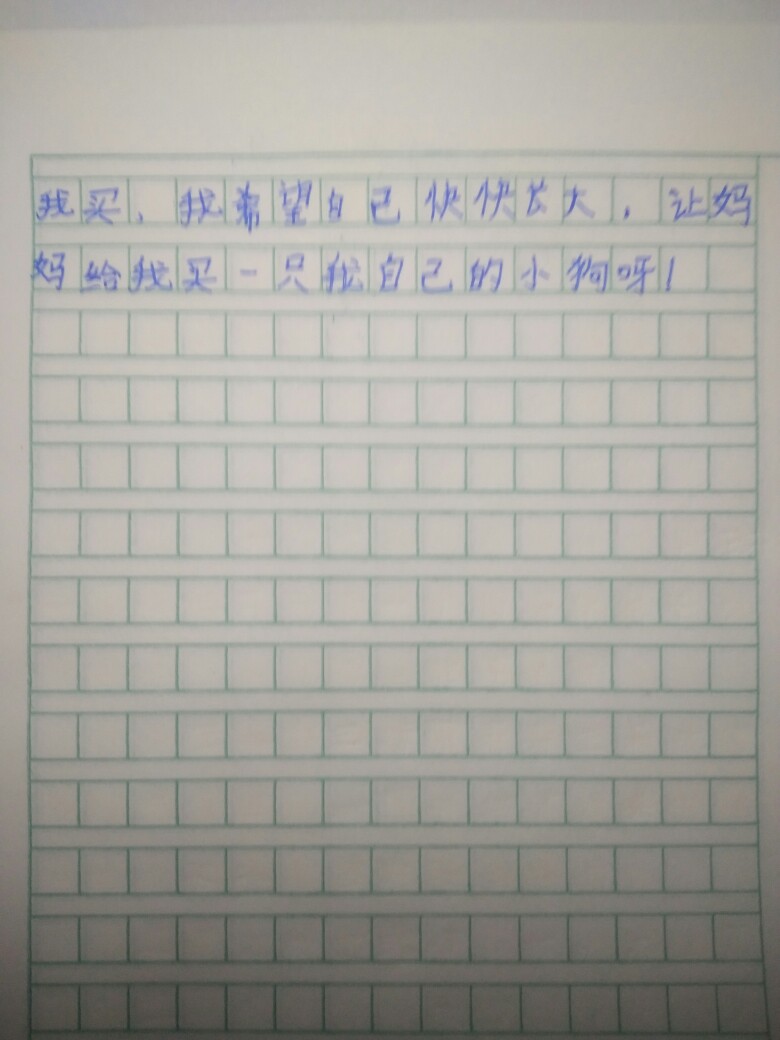 我买，我希望自己快快长大，让妈
妈给我买一只我自己的小狗呀！